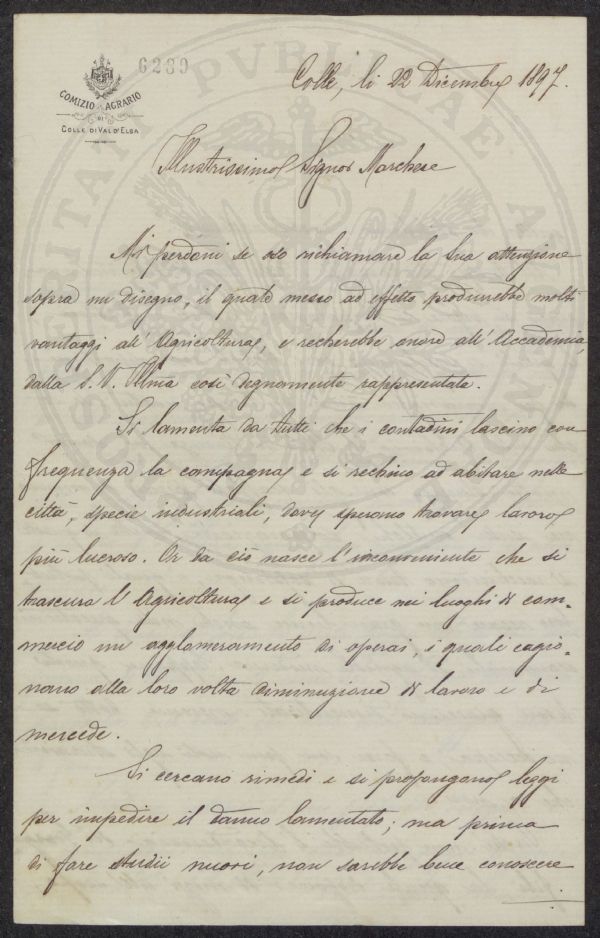 6289
COMIZIO AGRARIO
DI
COLLE DI VAL D'ELSA
Colle, li 22 Dicembre 1897.
Illustrissimo Signor Marchese
Mi perdoni se oso richiamare la Sua attenzione
sopra un disegno, il quale messo ad effetto produrrebbe molti
vantaggi all'Agricoltura, e recherebbe onore all'Accademia,
dalla S. V. Illma così degnamente rappresentata.
Si lamenta da tutti che i contadini lascino con
frequenza la campagna e si rechino ad abitare nelle
città, specie industriali, dove sperano trovare lavoro
più lucroso. Or da ciò nasce l'inconveniente che si
trascura l'Agricoltura e si produce nei luoghi di com-
mercio un agglomeramento di operai, i quali cagio-
nano alla loro volta diminuzione di lavoro e di
mercede.
Si cercano rimedi e si propongano leggi
per impedire il danno lamentato; ma prima
di fare studii nuovi, non sarebbe bene conoscere